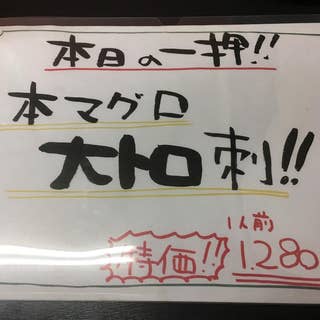 本日の一押!!
本マグロ
大トロ刺!!
特価!! 1人前
1.280